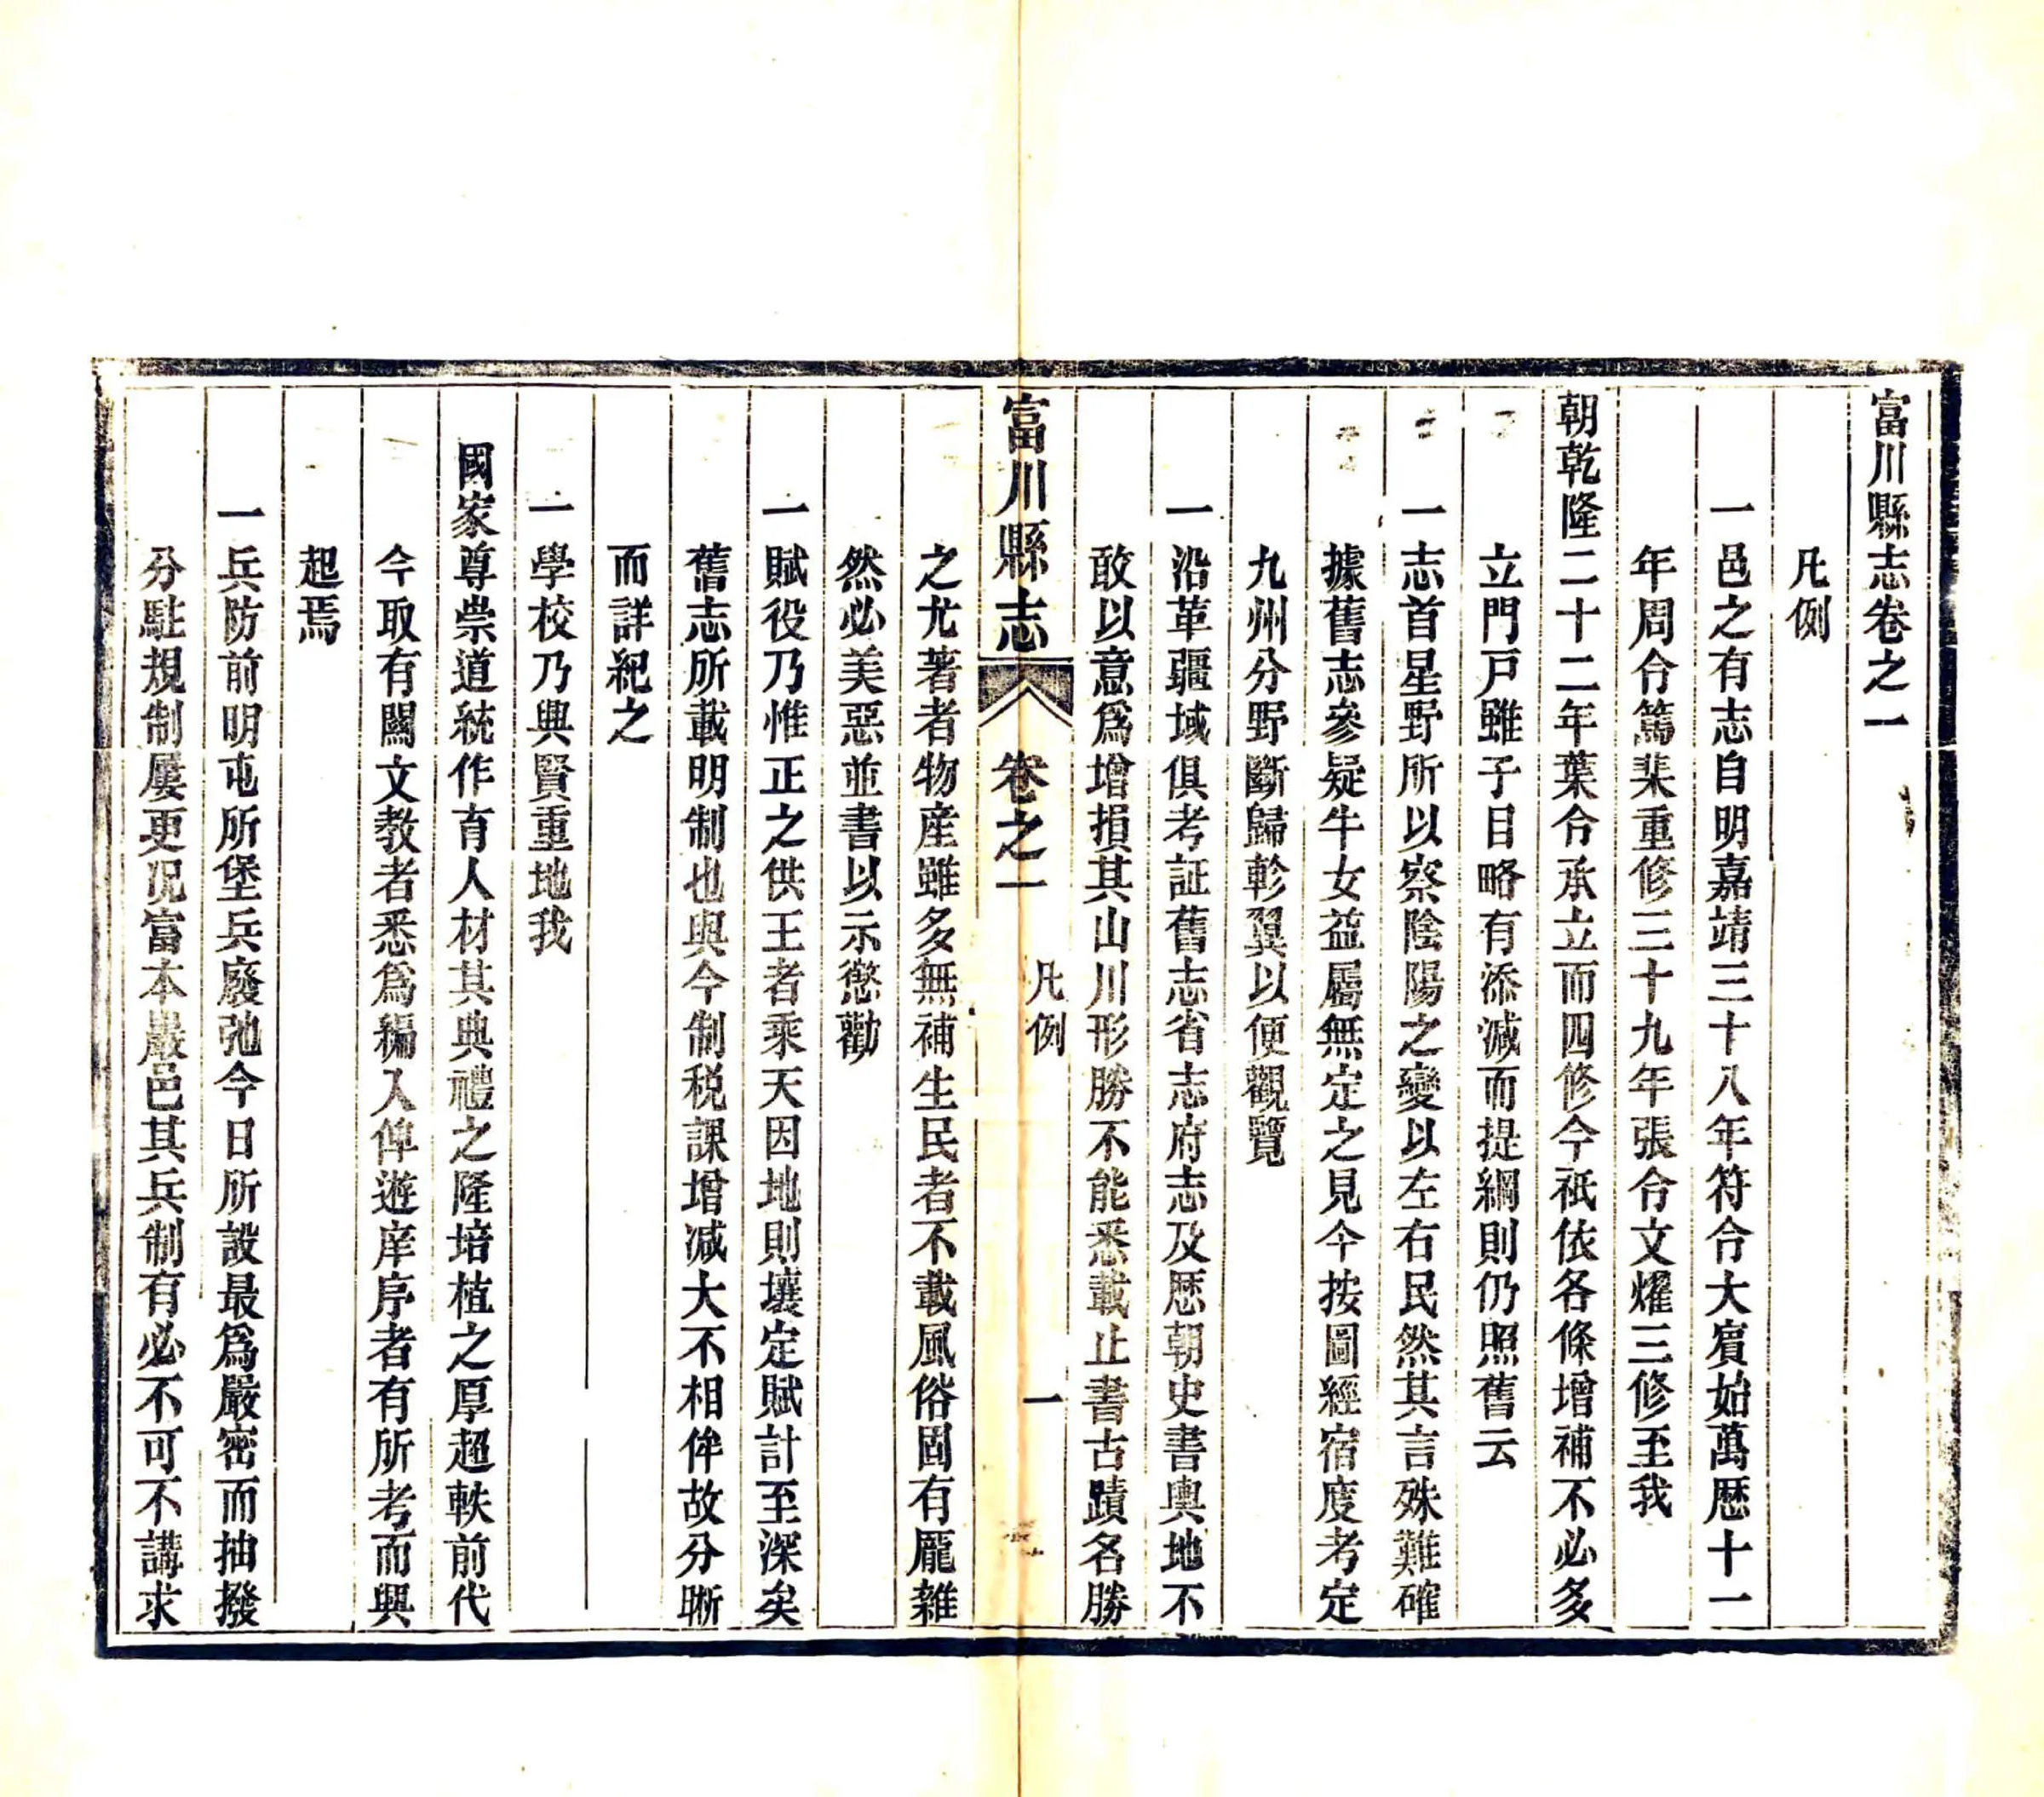 富川縣志卷之一
凡例
一邑之有志自明嘉靖三十八年符令大賓始萬歴十一
年周令篤棐重修三十九年張令文燿三修至我
朝乾隆二十二年葉令承立而四修今祇依各條增補不必多
立門戸雖子目略有添減而提綱則仍照舊云
一志首星野所以察陰陽之變以左右民然其言殊難確
據舊志參疑牛女益屬無定之見今按圖經宿度考定
九州分野斷歸軫翼以便觀覽
一沿革疆域俱考証舊志省志府志及歴朝史書輿地不
敢以意爲增損其山川形勝不能悉載止書古蹟名勝
富川縣志 卷之一 凡例 一
之尤著者物産雖多無補生民者不載風俗固有厖雜
然必美惡並書以示懲勸
一賦役乃惟正之供王者乘天因地則壤定賦計至深矣
舊志所載明制也與今制税課增减大不相侔故分晰
而詳紀之
一學校乃興賢重地我
國家尊崇道統作育人材其典禮之隆培植之厚超軼前代
今取有關文教者悉爲編入俾遊庠序者有所考而興
起焉
一兵防前明屯所堡兵廢弛今日所設最爲嚴密而抽撥
分駐規制屢更况富本巖邑其兵制有必不可不講求